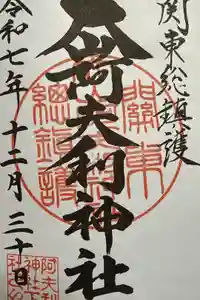 関東総鎮護
阿夫利神社
令和七年十二月三十日
關東
總鎮護
阿夫利
神社